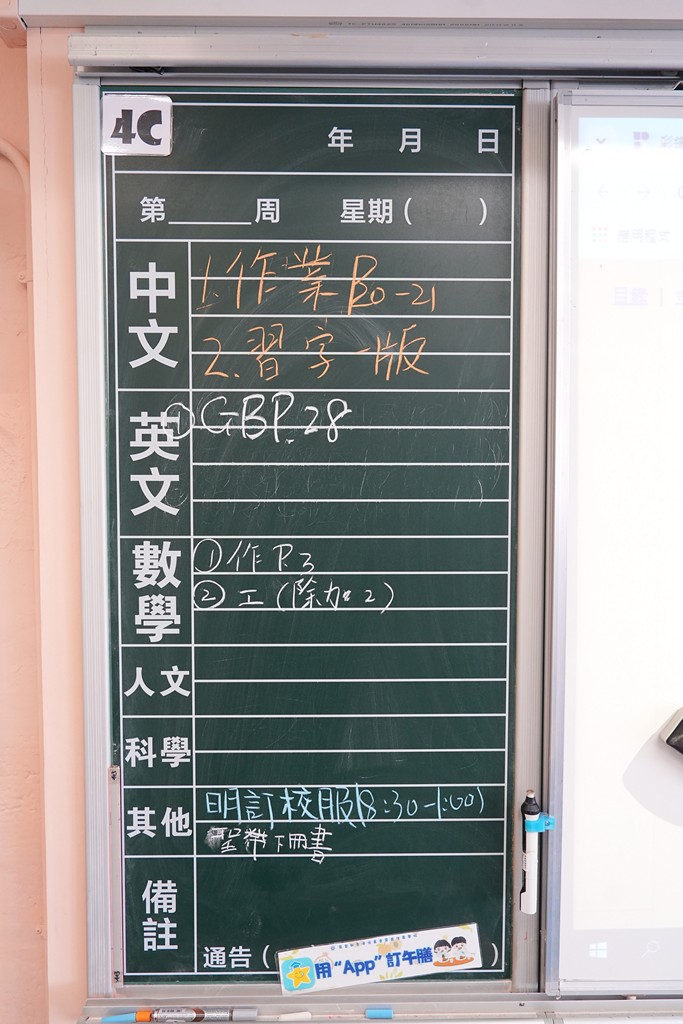 4C
年 月 日
第______周 星期( )
中文
1.作業P20-21
2.習字一版
英文
①GBP.28
數學
①作P.3
②工(除加2)
人文
科學
其他
明訂校服(8:30-1:00)
聖帶下冊書
備註
通告( )
用“App”訂午膳